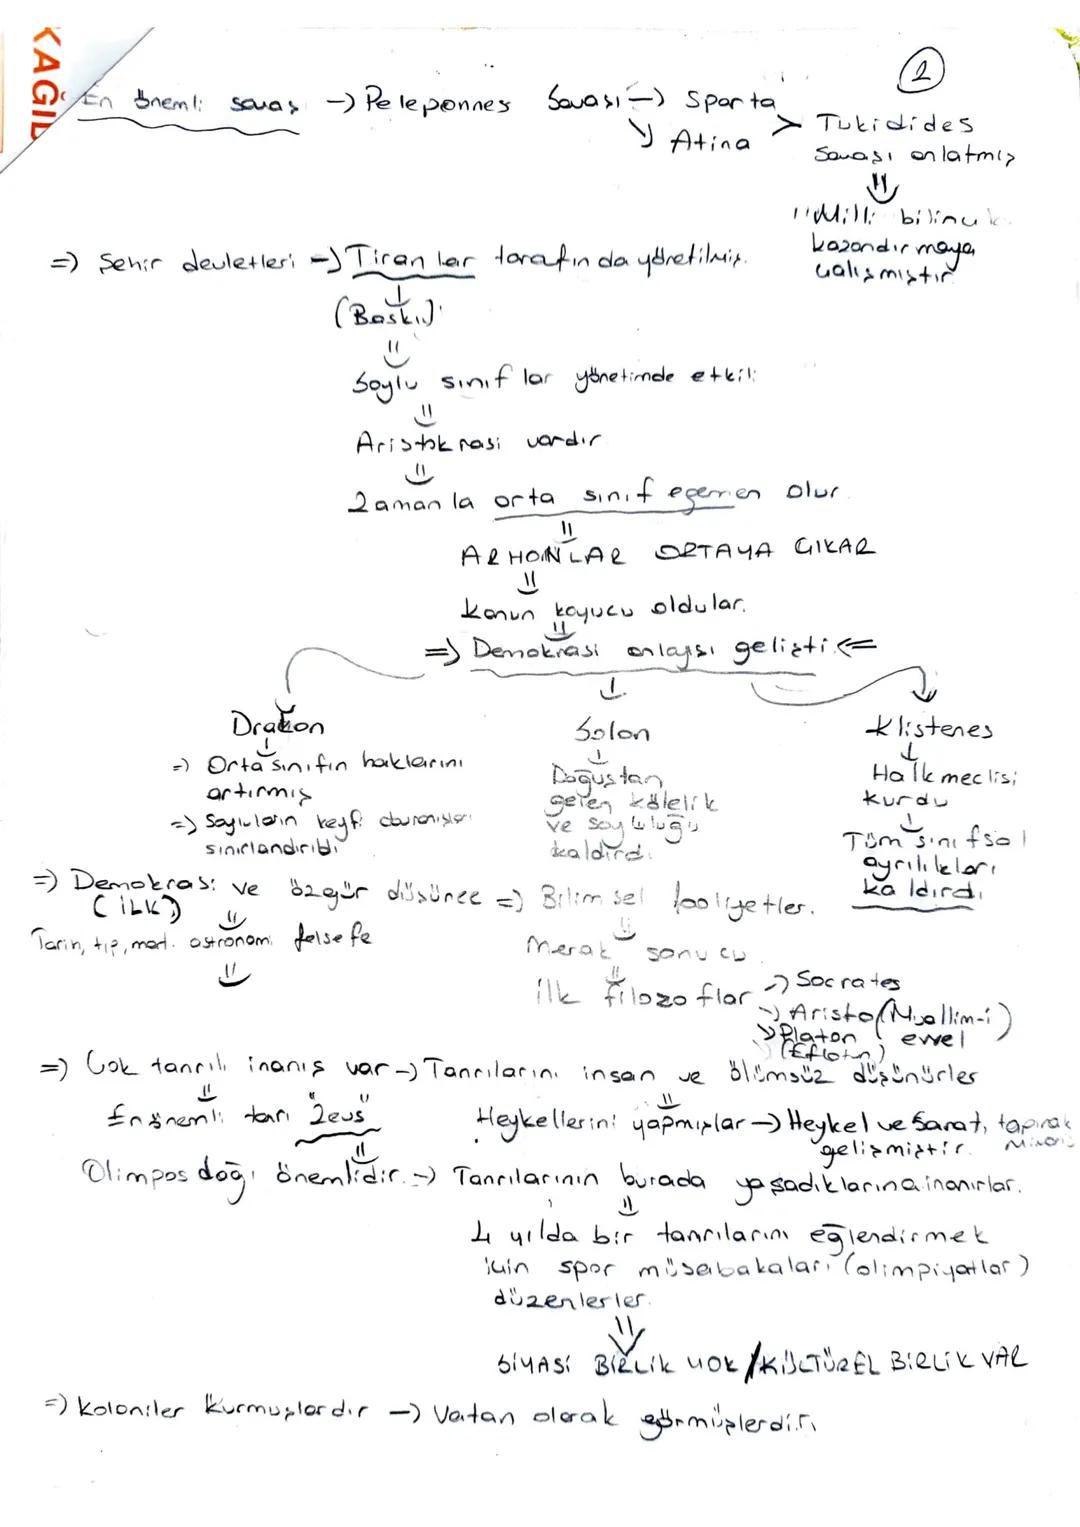 KAĞID
2
En önemli savaş -> Peleponnes Savaşı -> Sparta
Atina
> Tukidides
Savaşı anlatmış
"Milli bilinç
kazandırmaya
çalışmıştır
=> Şehir devletleri -> Tiranlar tarafında yönetilmiş.
(Baskıcı)
Soylu sınıflar yönetimde etkili
Aristokrasi vardır
Zamanla orta sınıf egemen olur.
ARHONLAR ORTAYA ÇIKAR
Kanun koyucu oldular.
=> Demokrasi anlayışı gelişti <=
Drakon
=> Orta sınıfın haklarını
artırmış
=> Soyluların keyfi davranışları
sınırlandırıldı
Solon
Doğuştan
gelen kölelik
ve soyluluğu
kaldırdı.
Klistenes
Halk meclisi
kurdu
Tüm sınıfsal
ayrılıkları
kaldırdı
=> Demokrasi ve özgür düşünce => Bilimsel faaliyetler.
(İLK)
Tarih, tıp, mat. astronomi felsefe
Merak sonucu
ilk filozoflar -> Socrates
-> Aristo (Muallim-i
evvel)
-> Platon
(Eflatun)
=> Çok tanrılı inanış var -> Tanrılarını insan ve ölümsüz düşünürler
En önemli tanrı "Zeus"
Heykellerini yapmışlar -> Heykel ve Sanat, tapınak
gelişmiştir. mimari
Olimpos dağı önemlidir. -> Tanrılarının burada yaşadıklarına inanırlar.
4 yılda bir tanrılarını eğlendirmek
için spor müsabakaları (olimpiyatlar)
düzenlerler.
SİYASİ BİRLİK YOK / KÜLTÜREL BİRLİK VAR
=> Koloniler Kurmuşlardır -> Vatan olarak görmüşlerdir.